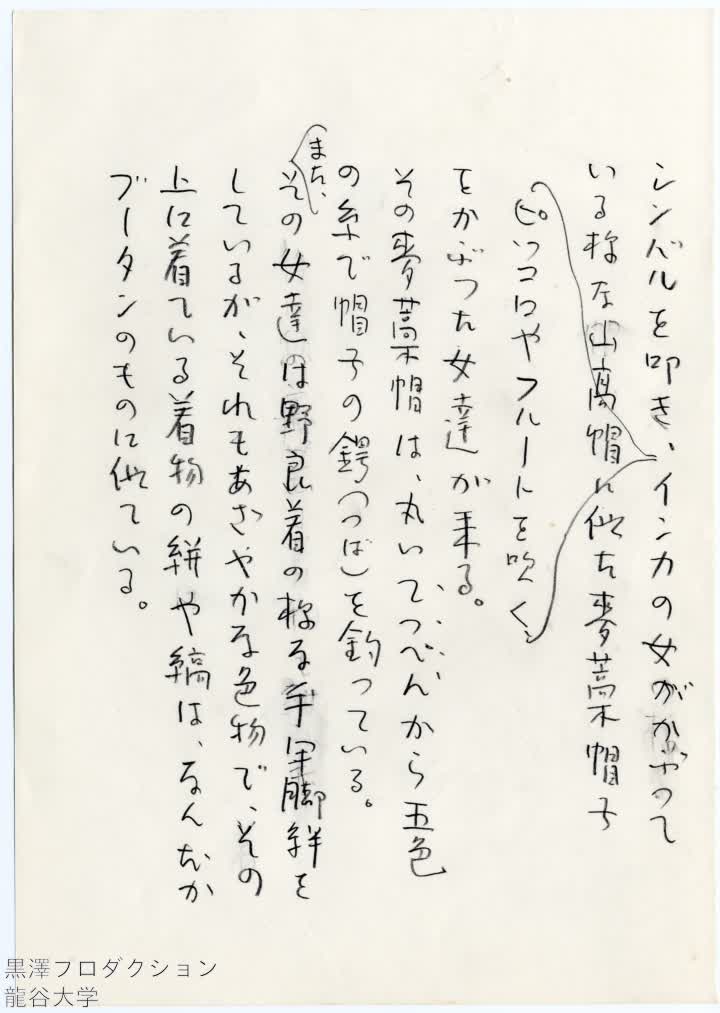 シンバルを叩き、インカの女がかぶって
いる様な山高帽に似た麦藁帽子
ピッコロやフルートを吹く、
をかぶった女達が来る。
その麦藁帽は、丸いてっぺんから五色
の糸で帽子の鍔(つば)を釣っている。
また、
その女達は野良着の様な手甲脚絆を
しているが、それもあざやかな色物で、その
上に着ている着物の絣や縞は、なんだか
ブータンのものに似ている。
黒澤プロダクション
龍谷大学